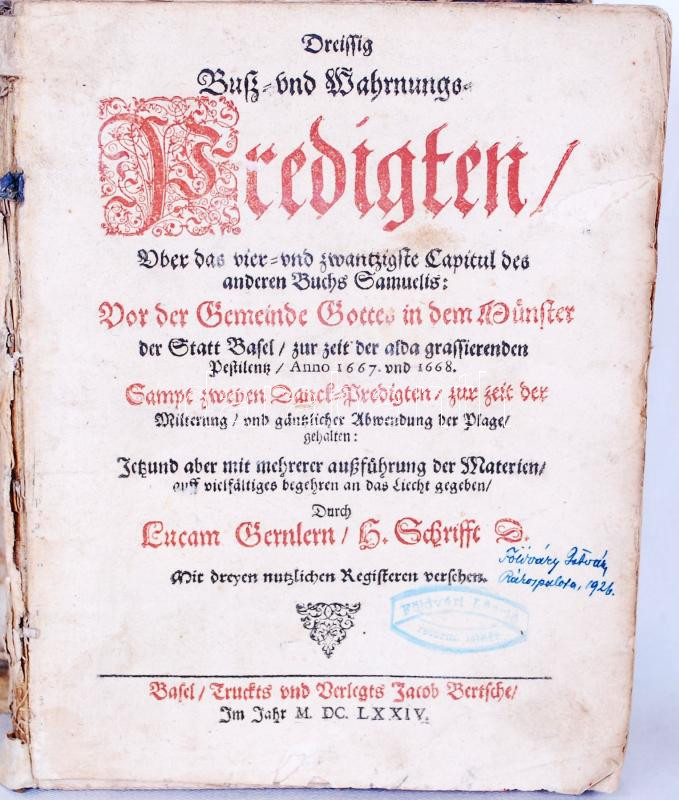 Dreissig
Buß-vnd Wahrnungs-
Predigten/
Vber das vier-vnd zwantzigste Capitul des
anderen Buchs Samuelis:
Vor der Gemeinde Gottes in dem Münster
der Statt Basel/ zur zeit der alda grassierenden
Pestilentz/ Anno 1667. vnd 1668.
Sampt zweyen Danck-Predigten/ zur zeit der
Milterung/ vnd gäntzlicher Abwendung der Plage/
gehalten:
Jetzund aber mit mehrerer außführung der Materien/
auff vielfältiges begehren an das Liecht gegeben/
Durch
Lucam Gernlern/ H. Schrifft D.
Mit dreyen nutzlichen Registeren versehen.
Földváry István
Rákospalota, 1926.
Földvári László
Basel/ Truckts vnd Verlegts Jacob Bertsche/
Im Jahr M. DC. LXXIV.